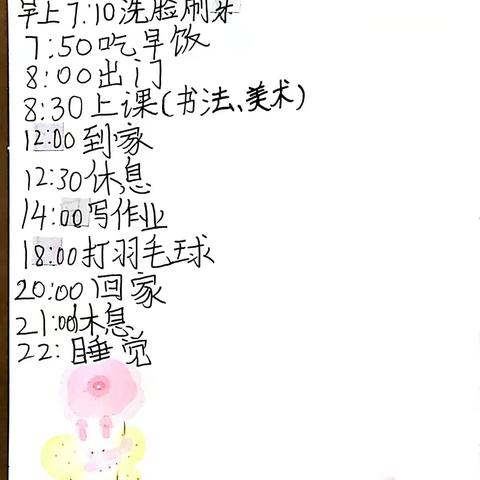 早上7:10洗脸刷牙
7:50吃早饭
8:00出门
8:30上课(书法、美术)
12:00到家
12:30休息
14:00写作业
18:00打羽毛球
20:00回家
21:00休息
22:睡觉